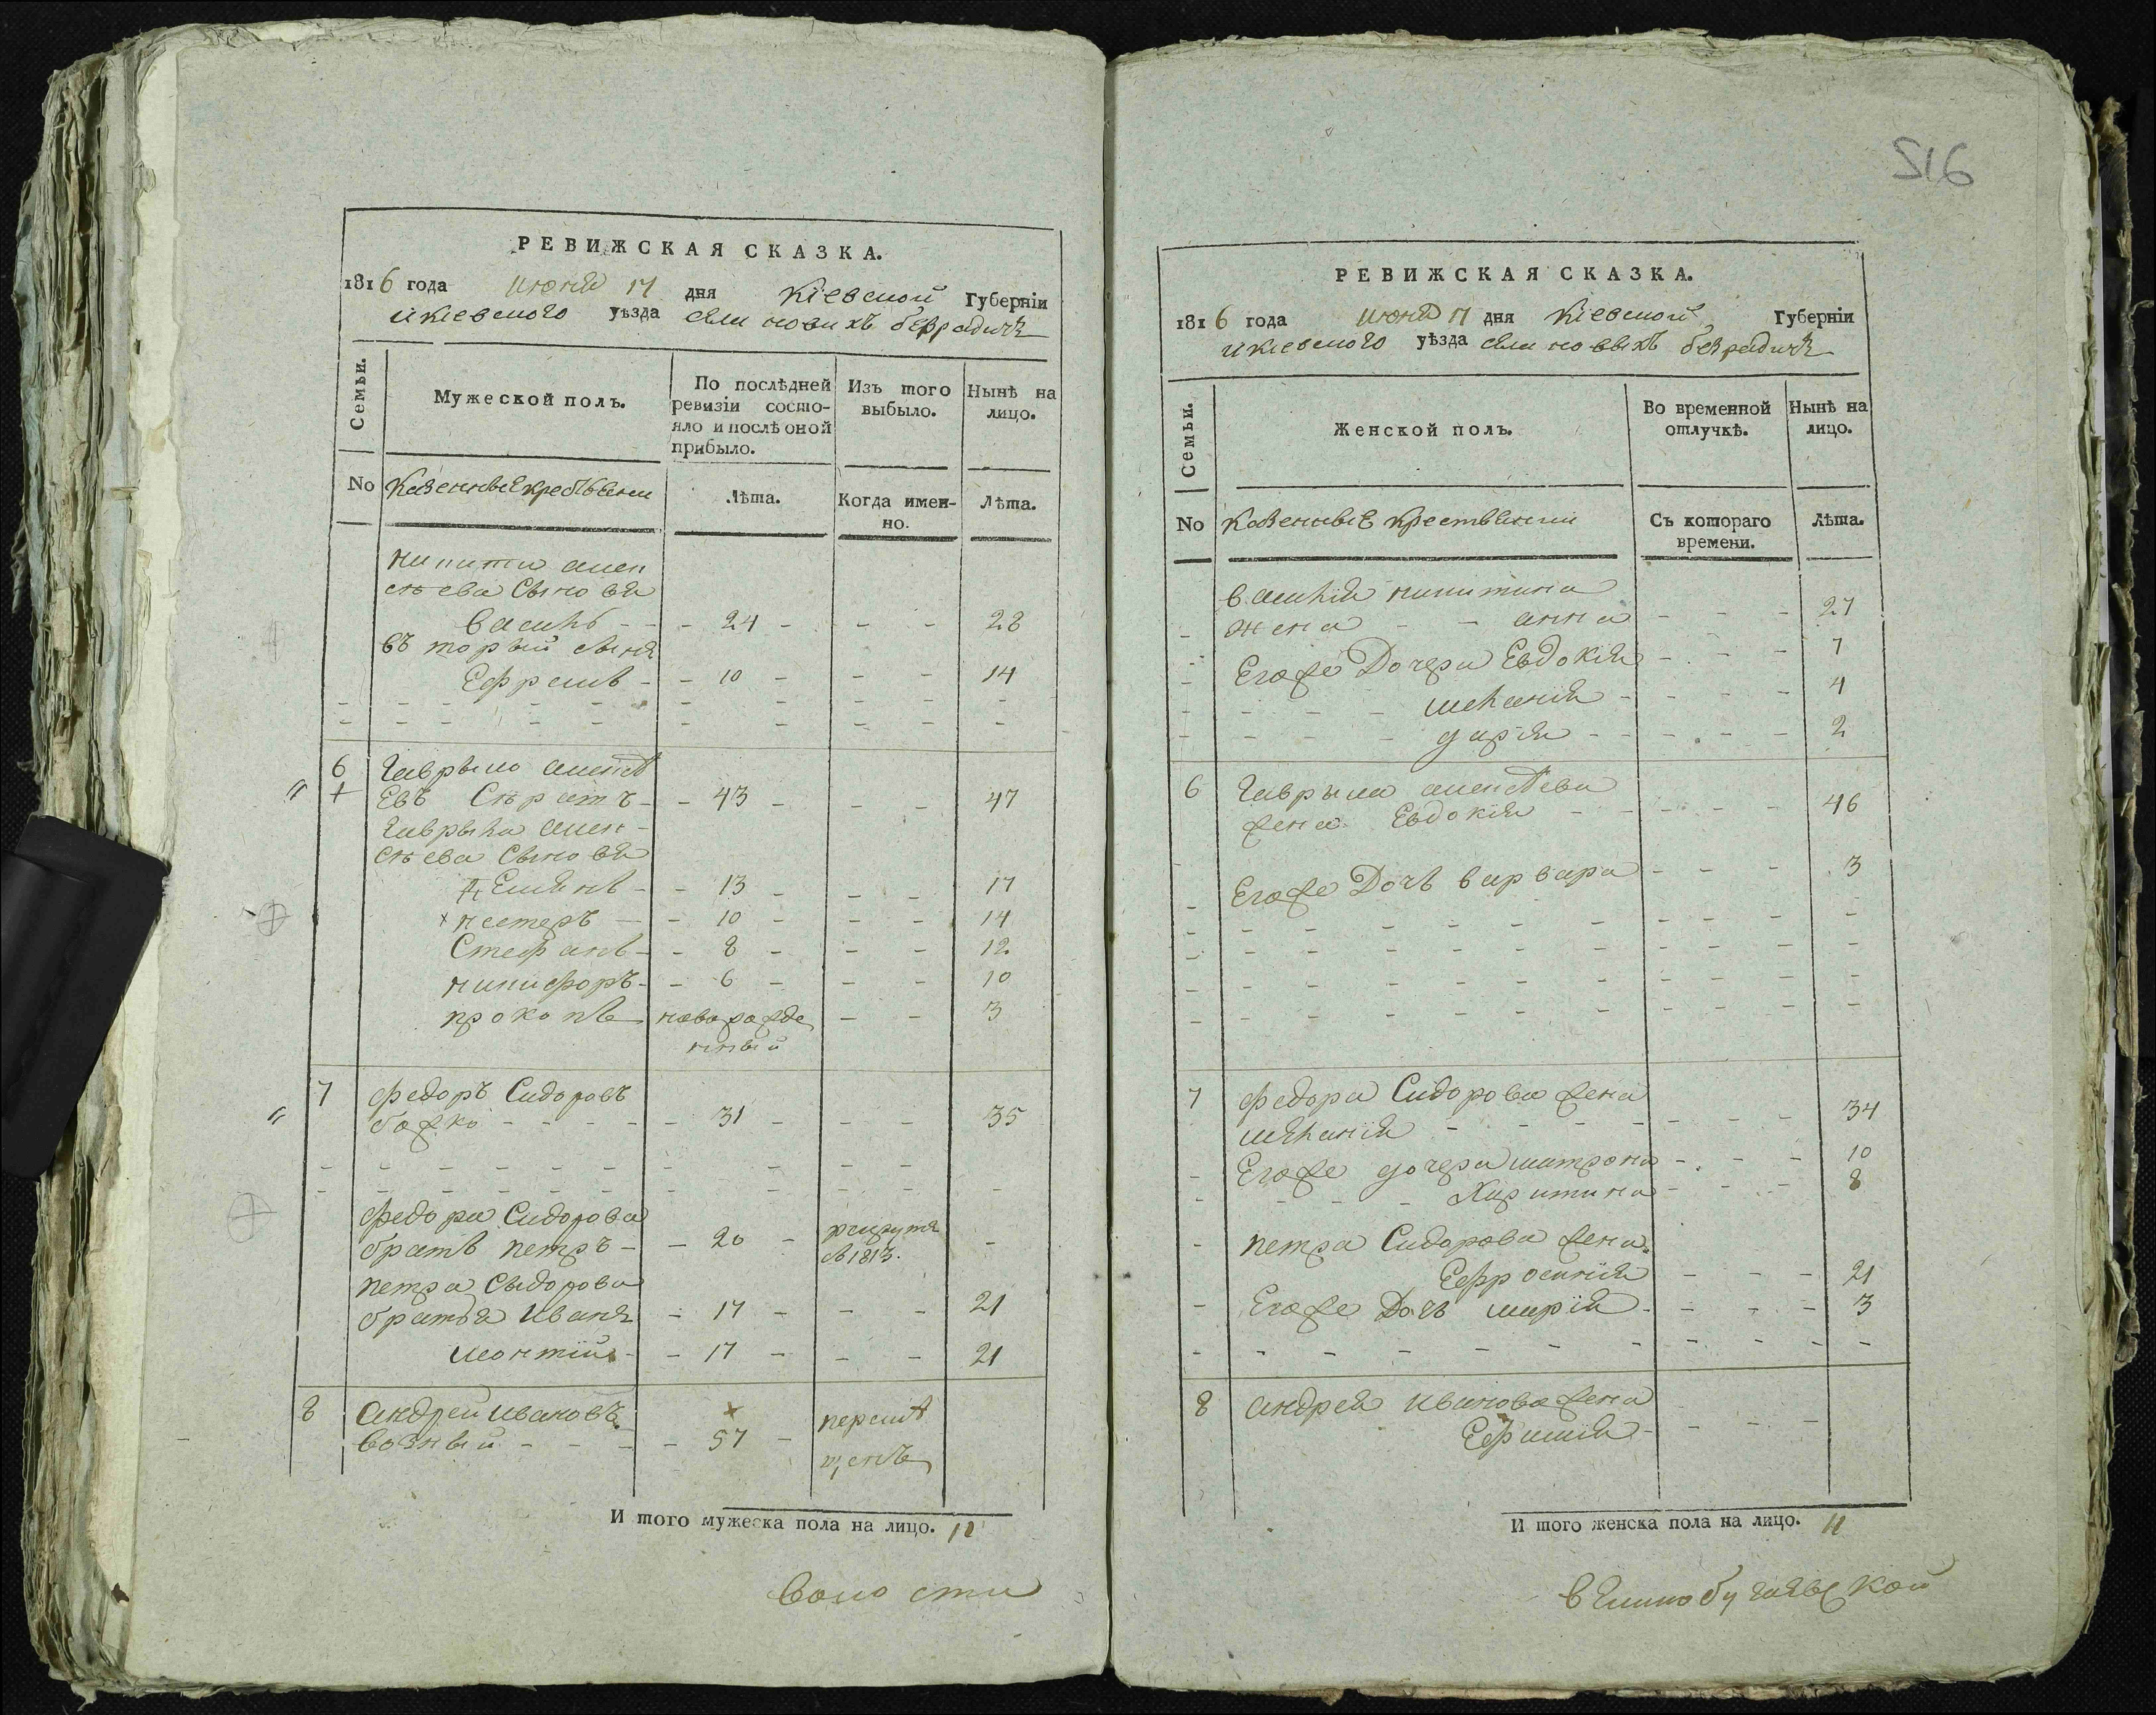 516
РЕВИЖСКАЯ СКАЗКА.
1816 года июня 17 дня Кіевской Губерніи
икіевского уѣзда села новихъ безрадичъ
Семьи.
Мужеской полъ.
По послѣдней ревизіи состо-
яло и послѣ оной
прибыло.
Изъ того
выбыло.
Нынѣ на
лицо.
No
Казенные крестьяни
Лѣта.
Когда имен-
но.
Лѣта.
никити алек
сѣева Сыновя
Василь - - - 24 - - - - 28
въторый сынъ
Ефремъ - - 10 - - - 14
6 Гаврыло алексѣ
Евъ Сѣратъ - - 43 - - - 47
Гаврыла алек-
сѣева Сыновя
Демянъ - - 13 - - - 17
нестеръ - - 10 - - - 14
Стефанъ - - 8 - - - 12
никифоръ - - 6 - - - 10
прокопъ новорожде - - 3
нный
7 федоръ Сидоровъ
божко - - - - - 31 - - - 35
федора Сидорова
братъ петръ - - 20 - рекрутъ -
въ 1813.
петра Сыдорова
братья Иванъ - 17 - - - 21
леонтій - - 17 - - - 21
8 андрей ивановъ
возный - - - - 57 - перемѣ
щенъ
И того мужеска пола на лицо. 11
волости
РЕВИЖСКАЯ СКАЗКА.
1816 года июня 17 дня Кіевской Губерніи
икіевского уѣзда села новыхъ безрадичъ
Семьи.
Женской полъ.
Во временной
отлучкѣ.
Нынѣ на
лицо.
No
Казенные крестьянии
Съ котораго
времени.
Лѣта.
василія никитина
жена - - анна - - - 27
Егоже Дочери Евдокія - - - 7
меланія - - - - 4
дарія - - - - - 2
6 Гаврыла алексѣева
жена Евдокія - - - - - 46
Егоже Дочь варвара - - - 3
7 федора Сидорова жена
меланія - - - - - - - - 34
Егоже дочери матрона - - - 10
Харитина - - - 8
петра Сидорова жена
Ефросинія - - - 21
Егоже Дочь марія - - - - 3
8 андрея иванова жена
Ефимія - - - -
И того женска пола на лицо. 11